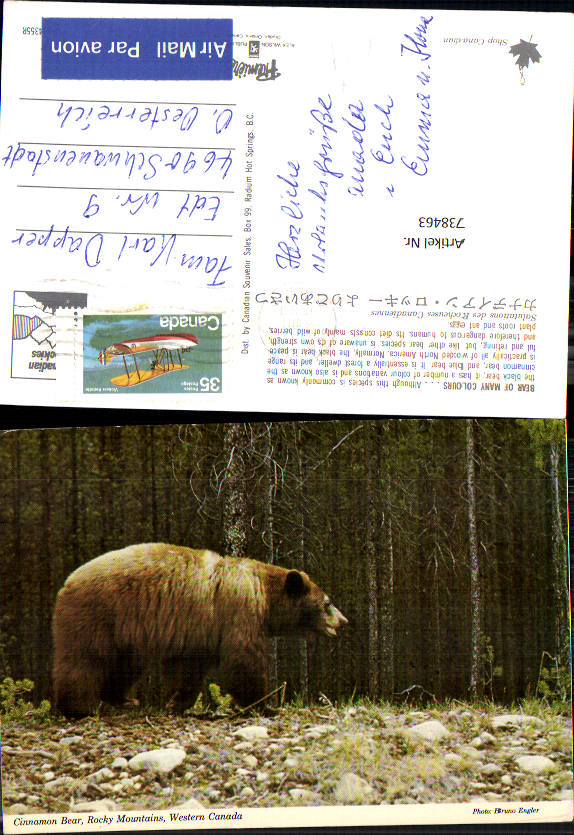 BEAR OF MANY COLOURS . . . . Although this species is commonly known as
the black bear, it has a number of colour variations and is also known as the
cinnamon bear, and blue bear. It is essentially a forest dweller, and its range
is practically all of wooded North America. Normally, the black bear is peace-
ful and retiring, but like other bear species is unaware of its own strength,
and therefore dangerous to humans. Its diet consists mainly of wild berries,
plant roots and ant eggs.
Salutations des Rocheuses Canadiennes
カナディアン・ロッキー よりごあいさつ
Artikel Nr.
738463
Herzliche
Urlaubsgrüße
Canada
Euch
Emma u.
Shop Canadian
Dist. by Canadian Souvenir Sales, Box 99, Radium Hot Springs, B.C.
35
Postes
Postage
Canada
Fam. Karl Dapper
Edt Nr. 9
4690 Schwanenstadt
O. Oesterreich
Air Mail Par avion
Cinnamon Bear, Rocky Mountains, Western Canada
Photo: Bruno Engler